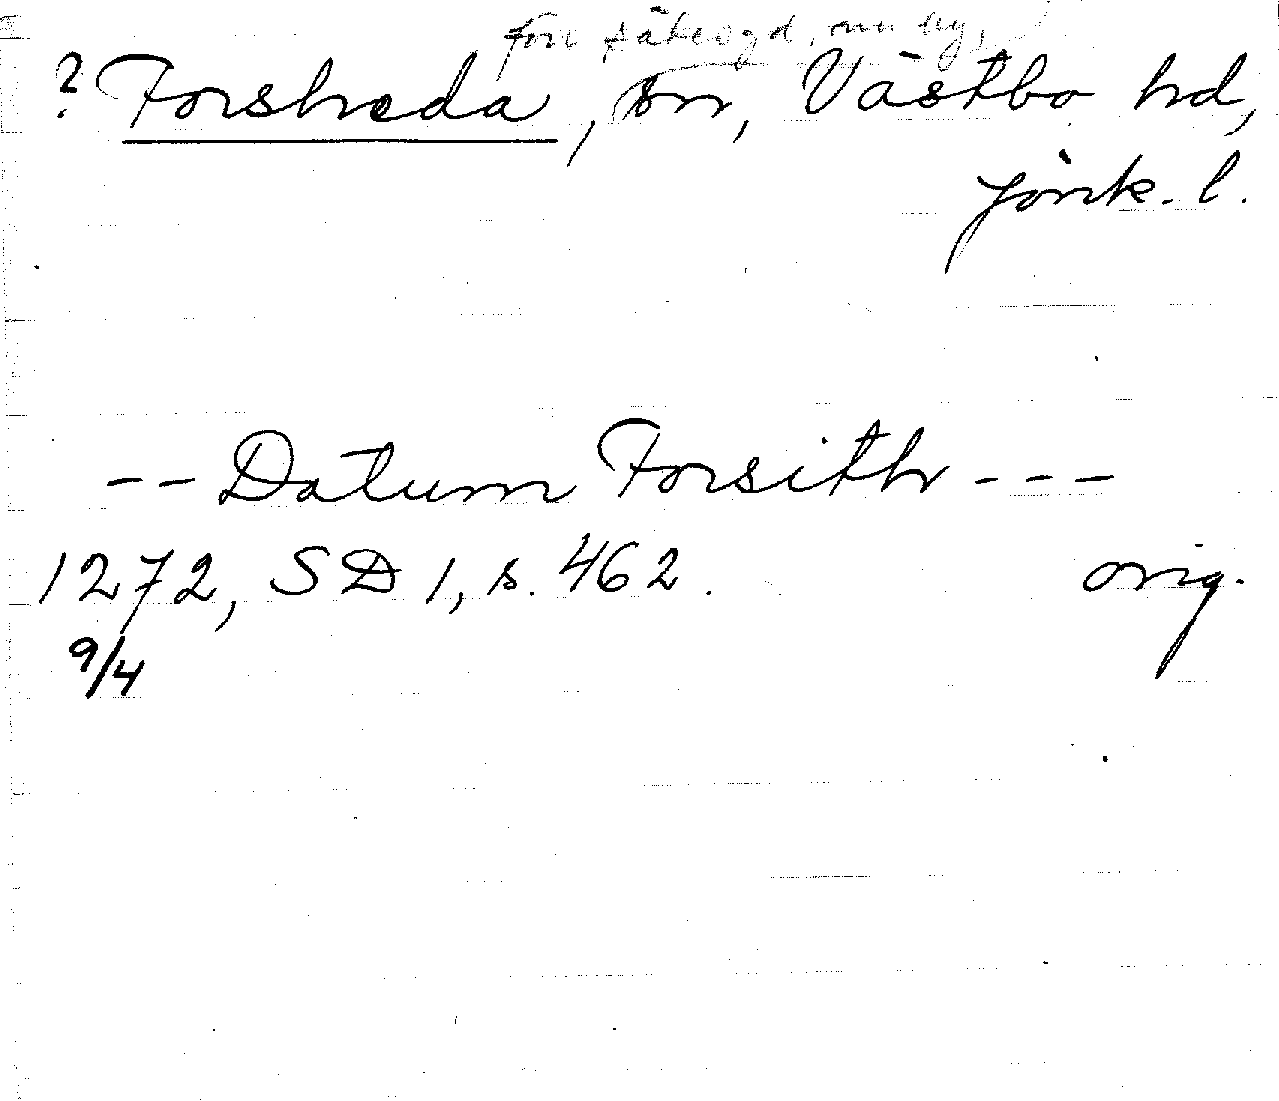 förr säteegd, nu by,
? Forsheda, sn, Västbo hd,
Jönk. l.
-- Datum Forsith ---
1272, SD 1, s. 462. orig.
9/4